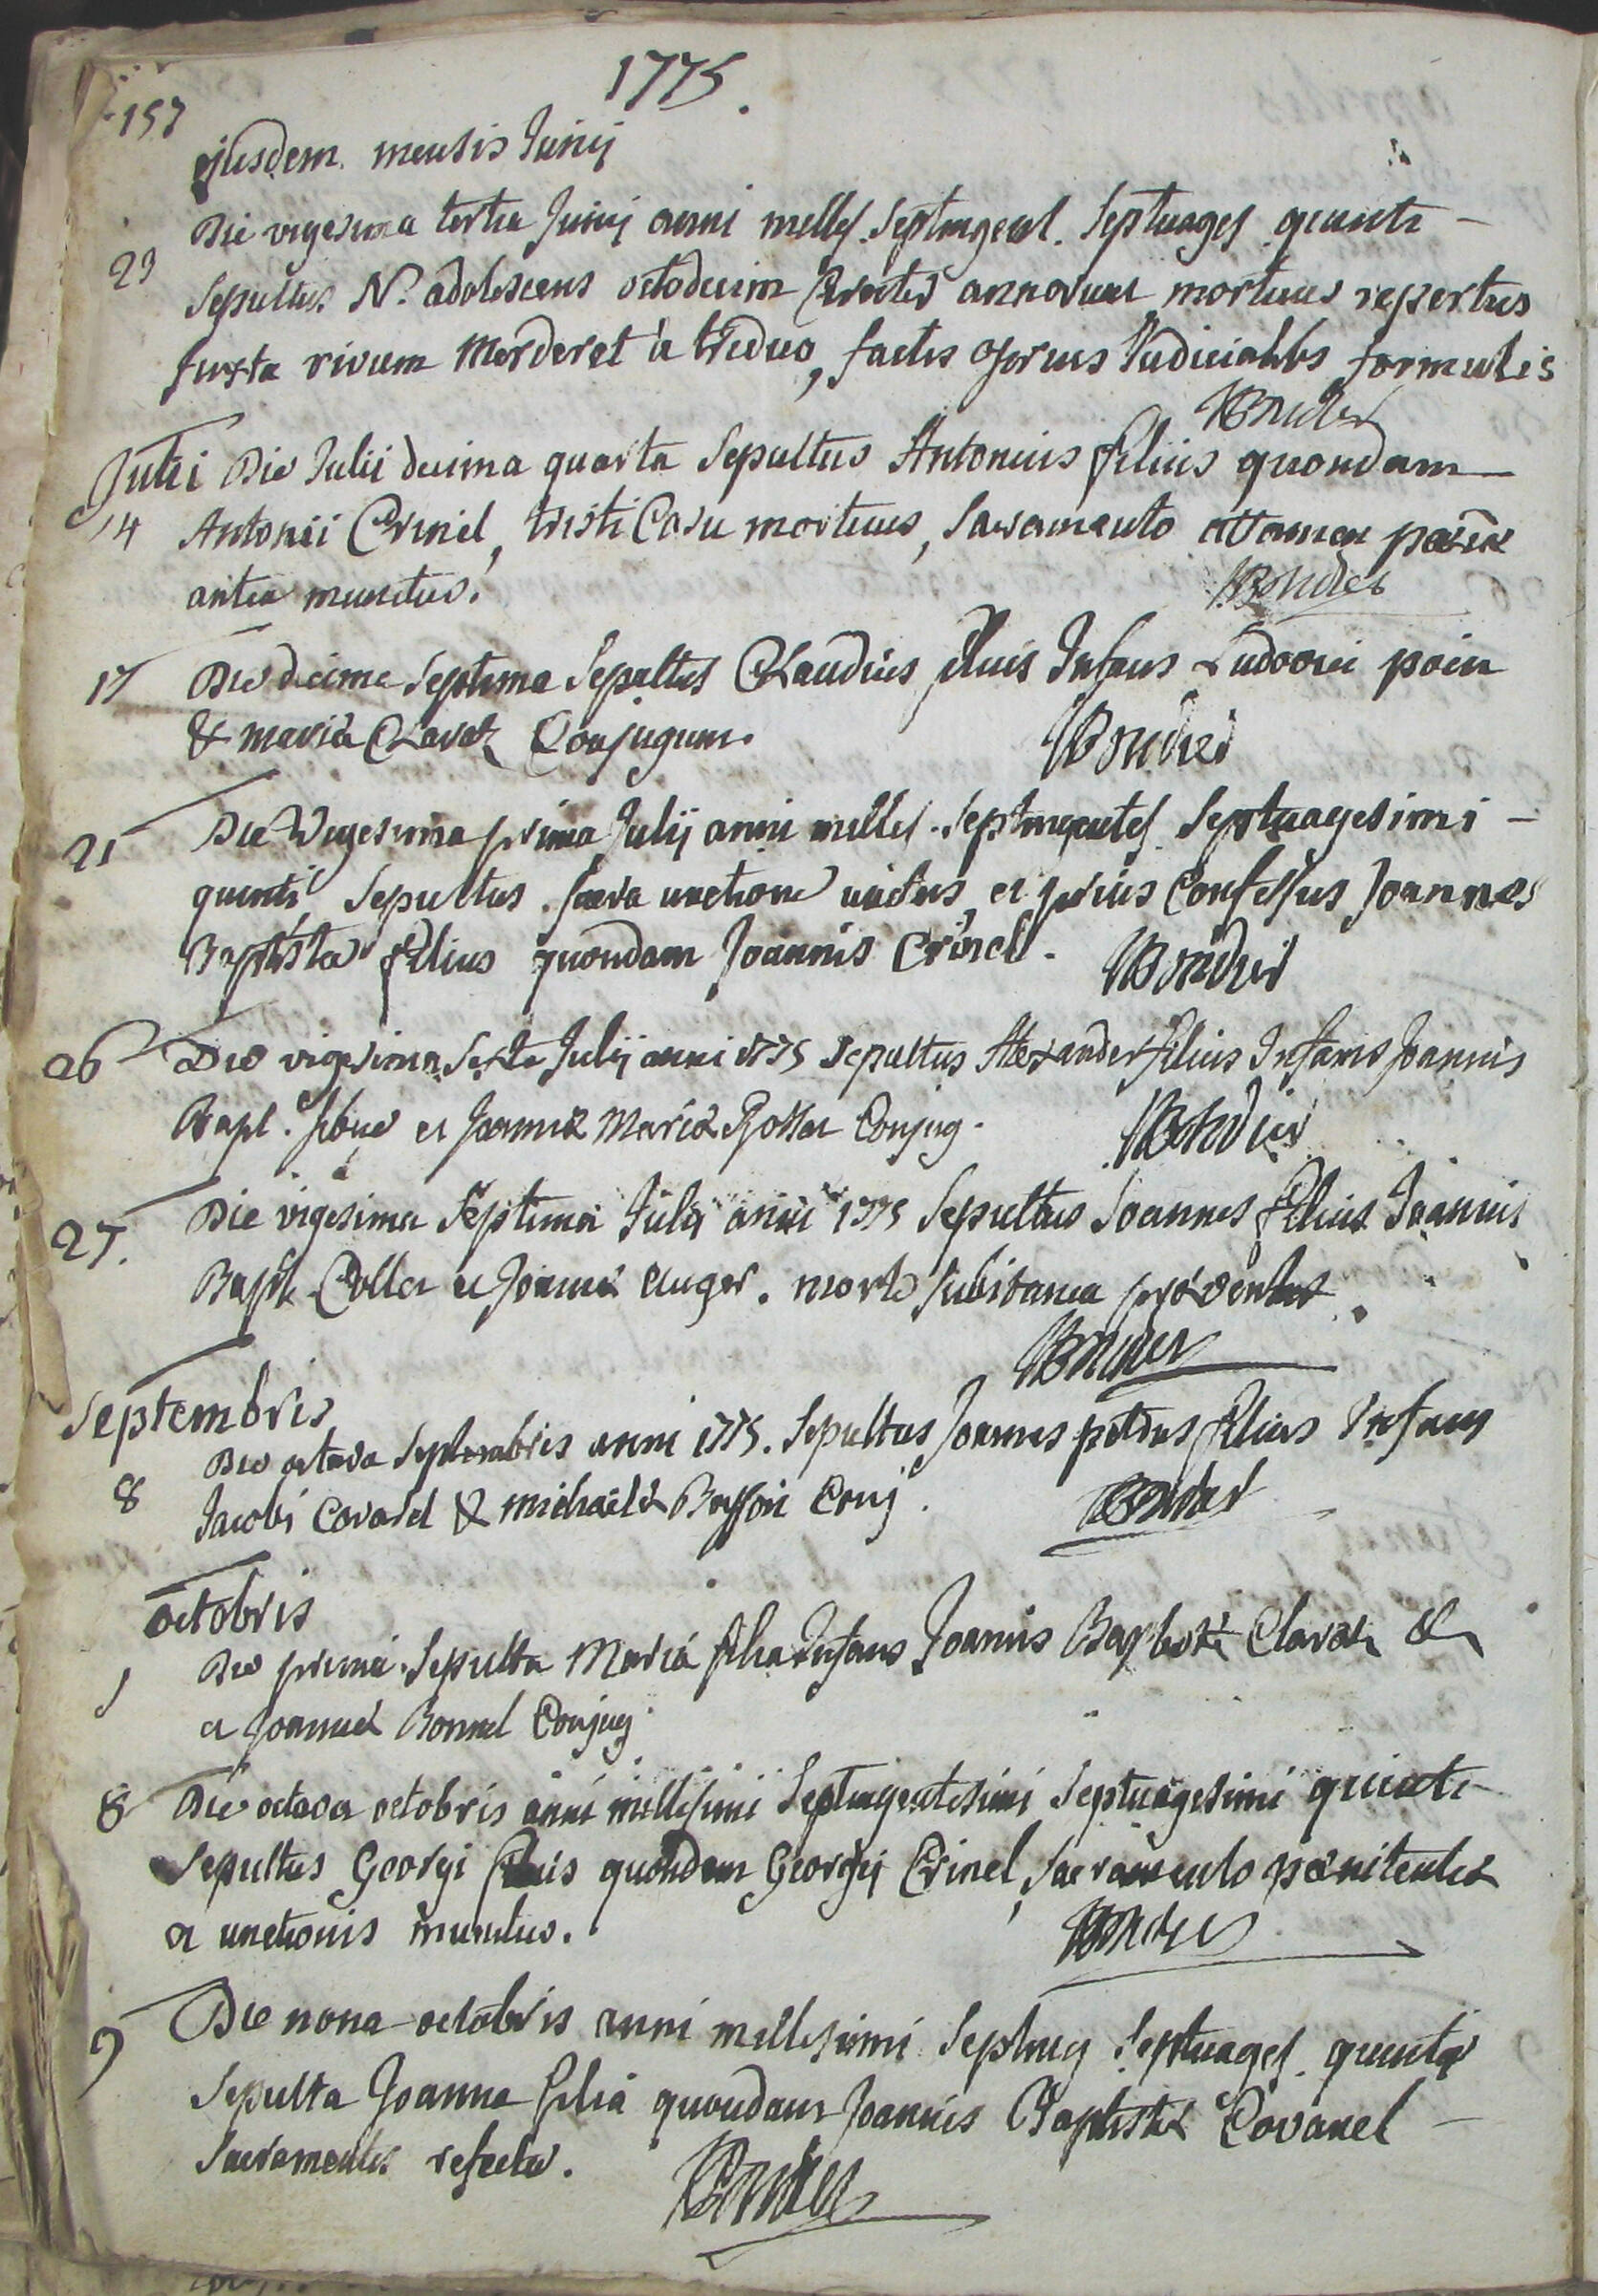 1775.
157
ejusdem mensis Junij
23 Die vigesima tertia Junij anni milles. Septingent. Septuages quinti –
Sepultus N. adolescens octodecim circiter annorum mortuus repertus
juxta rivum Merderet a triduo, factis prius Judicialibs formulis
Julii Die Julii decima quarta Sepultus Antonius filius quondam
14 Antonii Crinel, tristi Casu mortuus, Sacramento attamen
antea munitus.
17 Die decima Septima Sepultus Claudius filius Infans Ludovici poin
& maria Clavel Conjugum.
21 Die Vigesima prima Julij anni milles. Septingentes. Septuagesimi –
quinti Sepultus. sacra unctione unctus, et prius Confessus Joannes
Baptista filius quondam Joannis Crinel.
26 Die vigesima Sexta Julij anni 1775 Sepultus Alexander filius Infans Joannis
Bapt. et Joannæ Mariæ Conjug.
27. Die vigesima Septima Julij anni 1775 Sepultus Joannes filius Joannis
Bapt. Collet et Joannæ Auger. morte subitanea præventus.
Septembris
8 Die octava Septembris anni 1775. Sepultus Joannes petrus filius Infans
Jacobi Cavarel & michaelæ Conj.
octobris
1 Die prima Sepulta Maria filia Infans Joannis Baptistæ &
et Joannæ Bonnel Conjug.
8 Die octava octobris anni millesimi Septingentesimi Septuagesimi quinti
Sepultus Georgi filius quondam Georgij Crinel, Sacramento pænitentiæ
et unctionis munitus.
9 Die nona octobris anni millesimi Septing Septuages. quinti
Sepulta Joanna filia quondam Joannis Baptistæ Cavarel –
Sacramentis refecta.